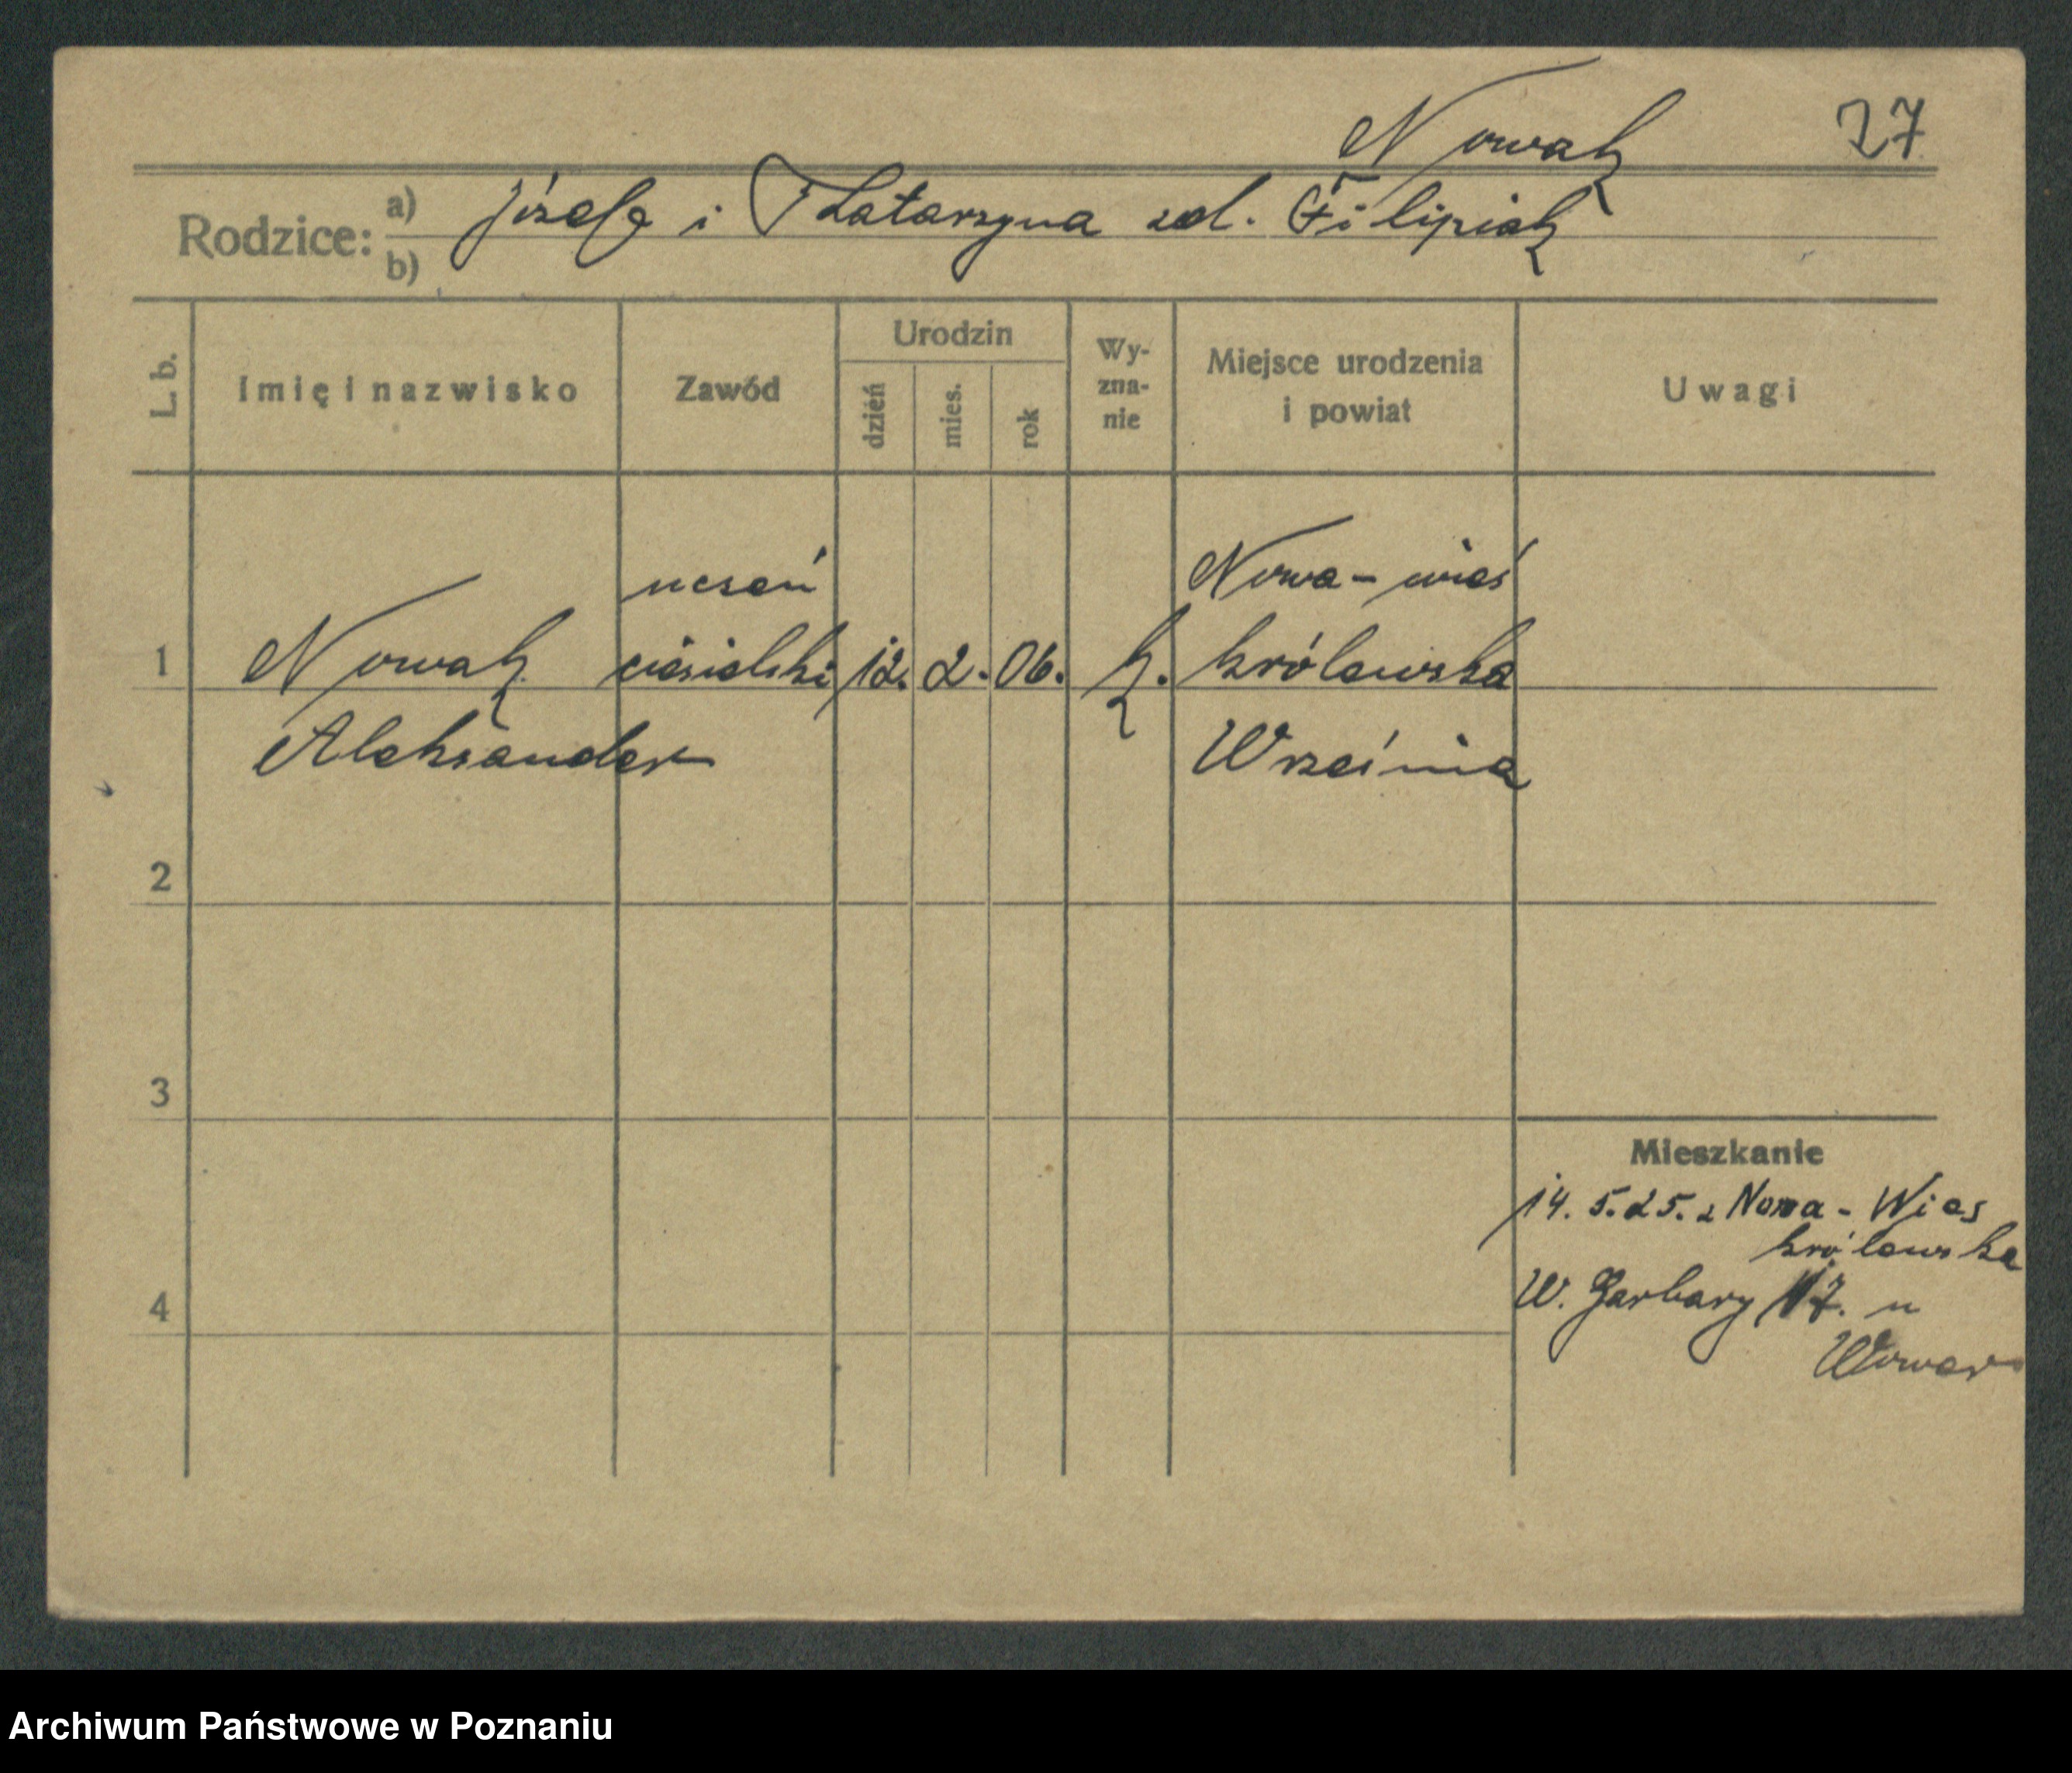 Nowak 27
Rodzice: a) Józefa i Katarzyna zd. Filipiak
b)
L. b. Imię i nazwisko Zawód Urodzin dzień mies. rok Wy-zna-nie Miejsce urodzenia i powiat Uwagi
uczeń Nowa-wieś
1 Nowak ciesielski 12. 2. 06. k. królewska
Aleksander Września
2
3
Mieszkanie
14. 5. 25. z Nowa-Wies
królewska
4 W. Garbary 17. u
Archiwum Państwowe w Poznaniu